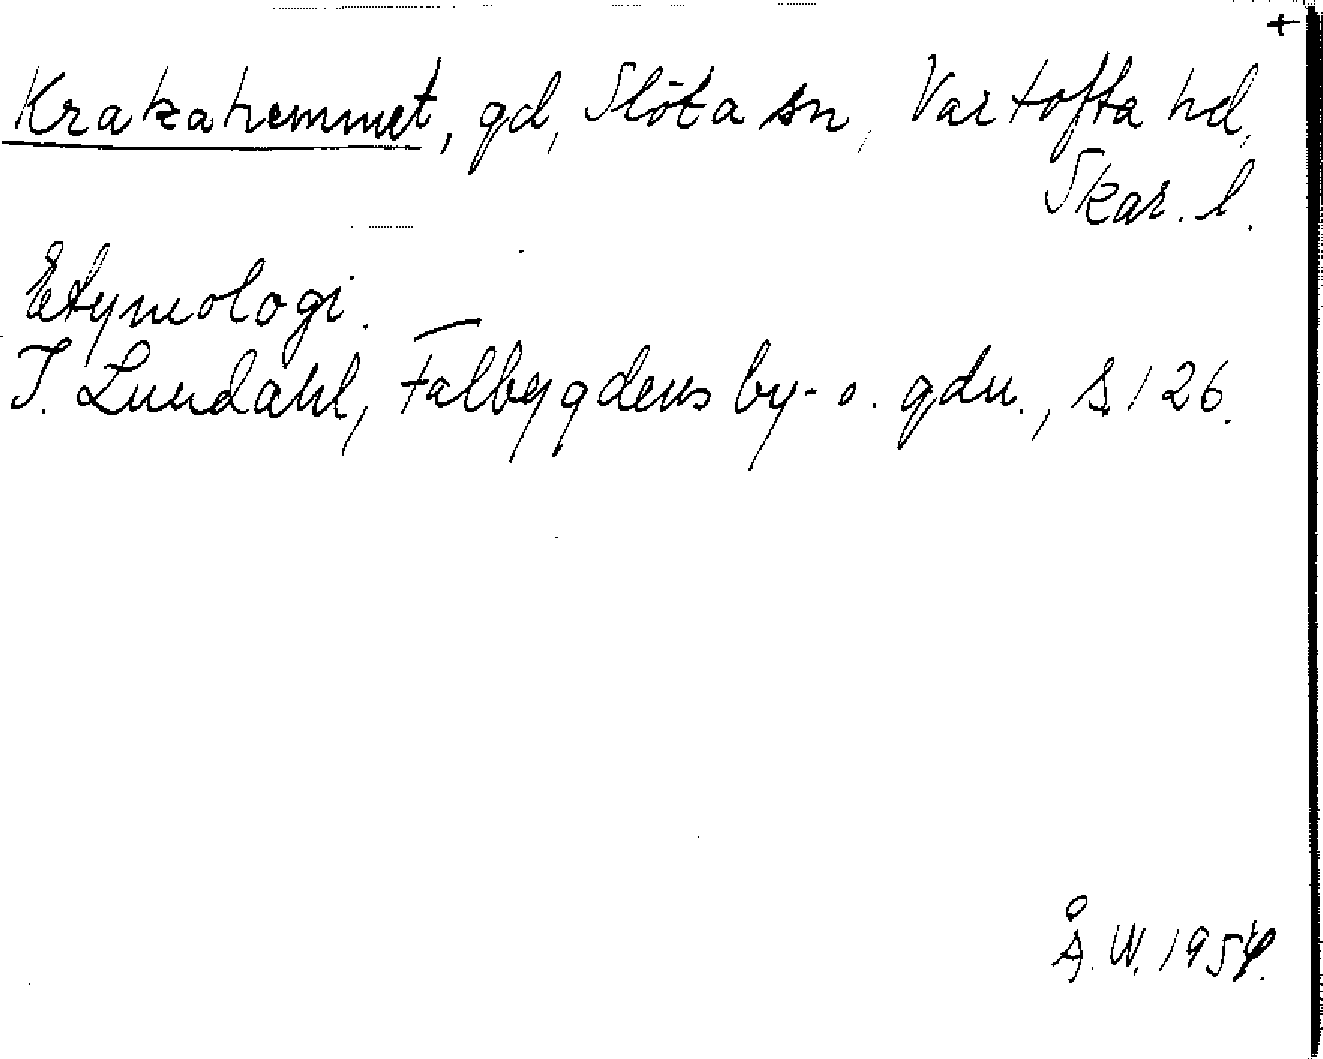 +
Krakahemmet, gd, Slöta sn, Vartofta hd,
Skar. l.
Etymologi.
I. Lundahl, Falbygdens by- o. gdn., s. 126.
Å. W. 1954.